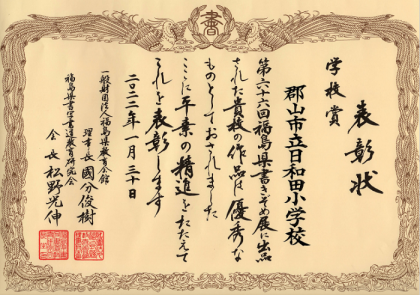 書
表彰状
学校賞
郡山市立日和田小学校
第六十六回福島県書きぞめ展に出品
された貴校の作品は優秀な
ものとしておされました
ここに平素の精進をたたえて
これを表彰します
二〇二二年一月三十日
一般財団法人福島県教育会館
理事長 國分俊樹
福島県書写書道教育研究会
会長 松野光伸